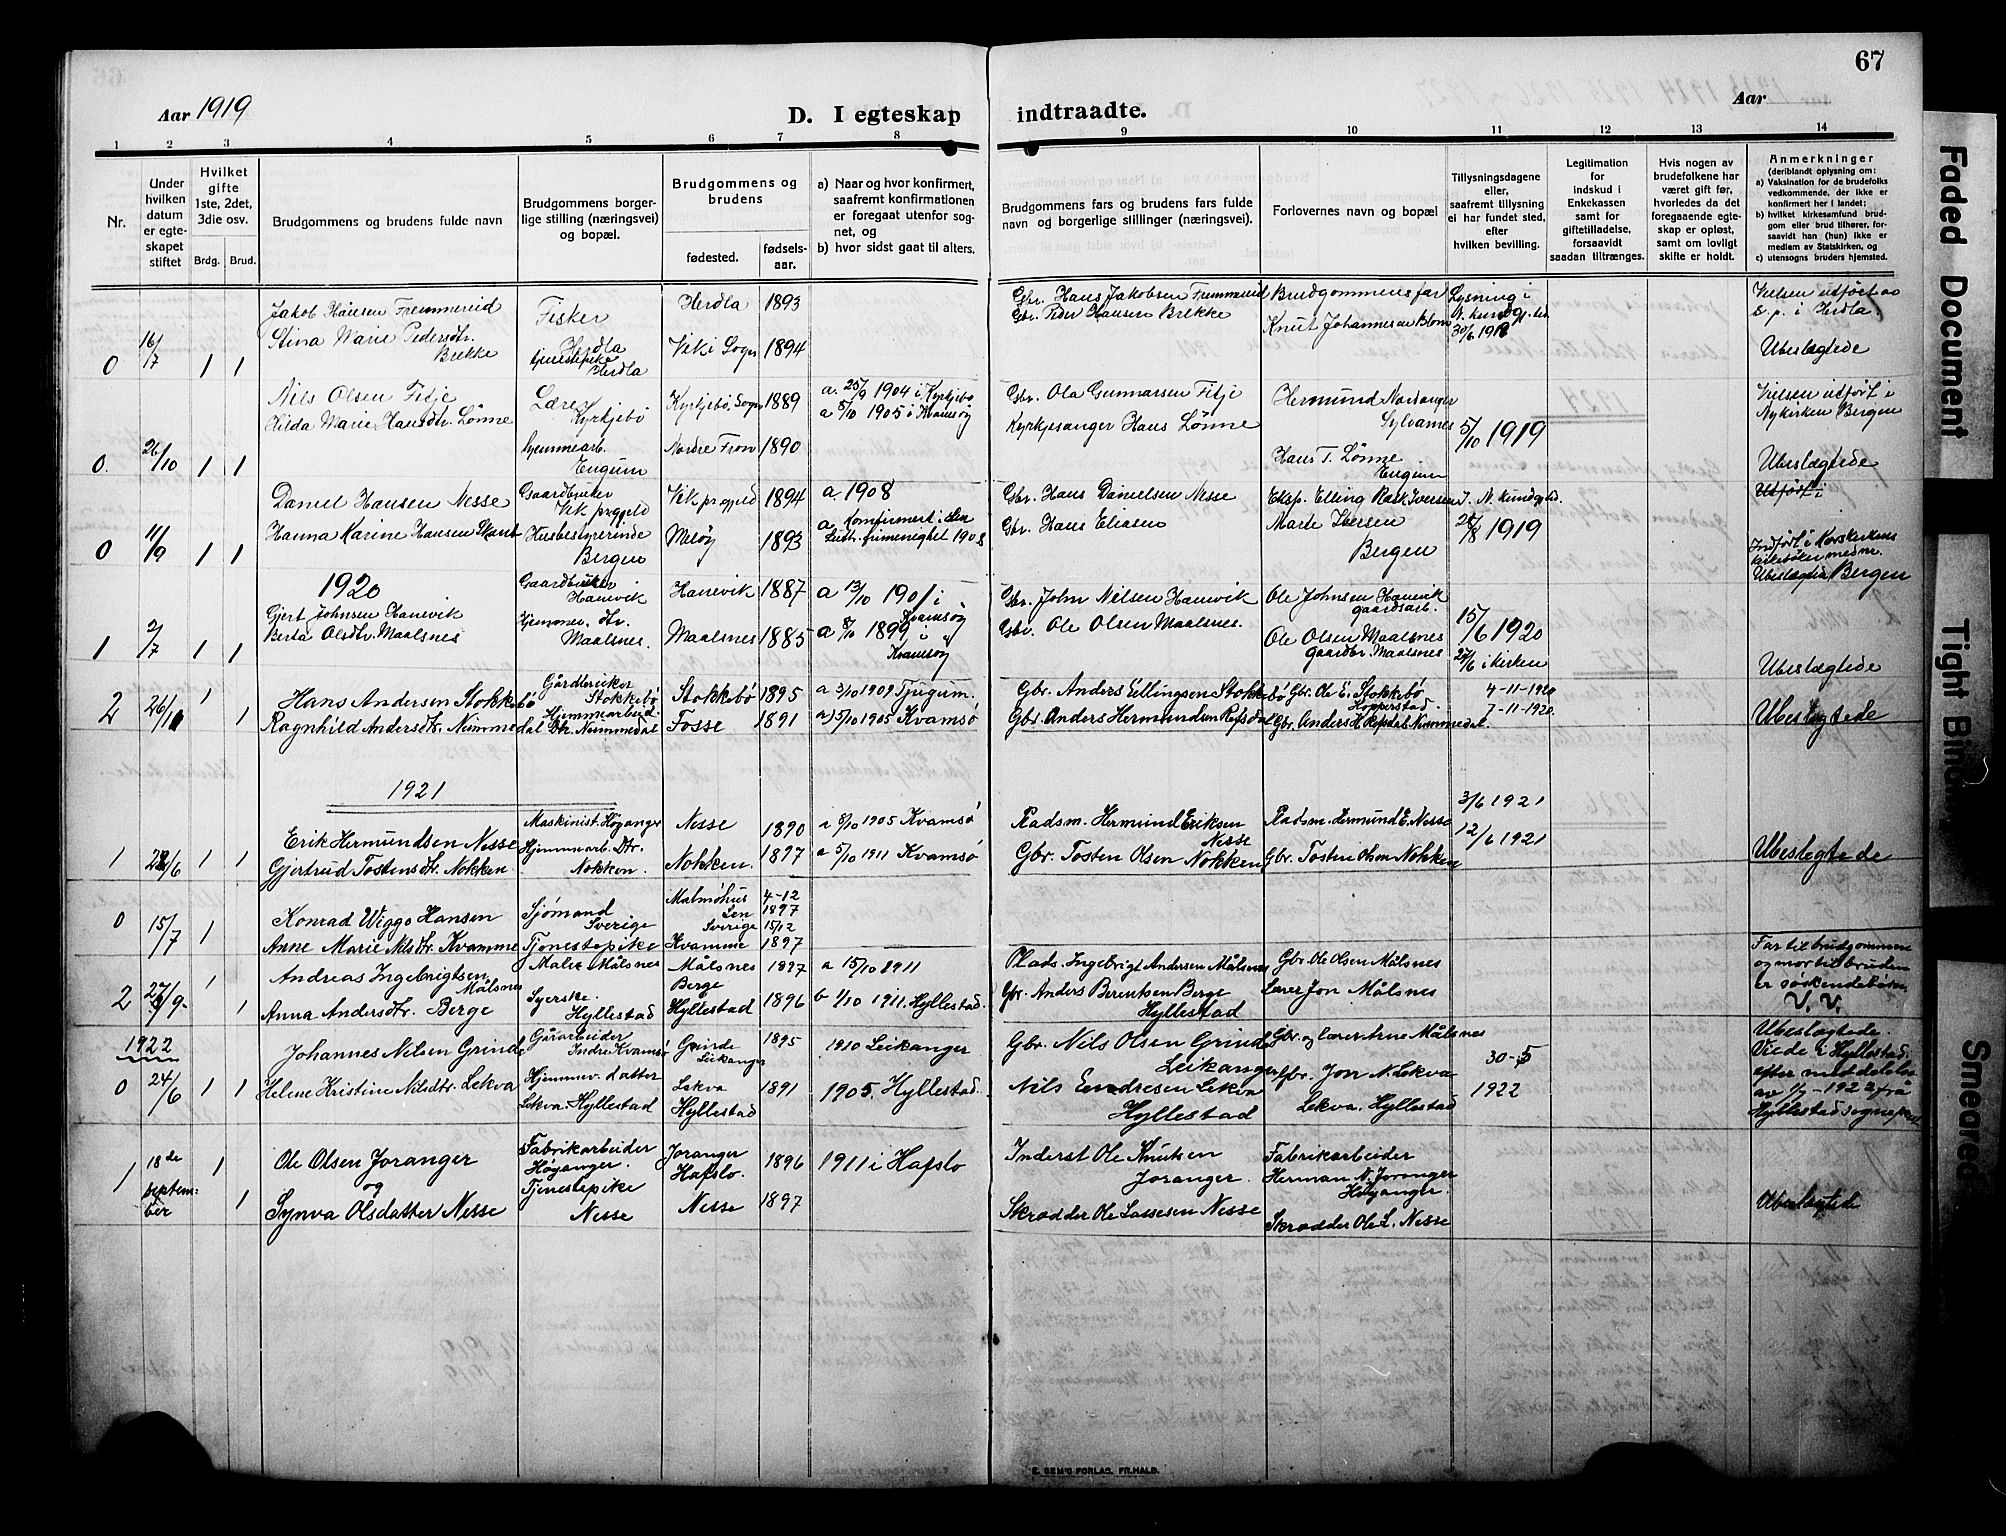 67
Aar 1919
D. I egteskap indtraadte.
Aar
1 2 3 4 5 6 7 8 9 10 11 12 13 14
Nr.
Under hvilken datum er egteskapet stiftet
Hvilket gifte 1ste, 2det, 3die osv.
Brdg. Brud.
Brudgommens og brudens fulde navn
Brudgommens borgerlige stilling (næringsvei) og bopæl.
Brudgommens og brudens
fødested.
fødselsaar.
a) Naar og hvor konfirmert, saafremt konfirmationen er foregaat utenfor sognet, og
b) hvor sidst gaat til alters.
Brudgommens fars og brudens fars fulde navn og borgerlige stillinger (næringsvei).
Forlovernes navn og bopæl
Tillysningsdagene eller, saafremt tillysning ei har fundet sted, efter hvilken bevilling.
Legitimation for indskud i Enkekassen samt for giftetilladelse, forsaavidt saadan tiltrænges.
Hvis nogen av brudefolkene har været gift før, hvorledes da det foregaaende egteskap er opløst, samt om lovligt skifte er holdt.
Anmerkninger
(deriblandt oplysning om:
a) Vaksination for de brudefolks vedkommende, der ikke er konfirmert her i landet;
b) hvilket kirkesamfund brudgom eller brud tilhører, forsaavidt han (hun) ikke er medlem av Statskirken, og
c) utensogns bruders hjemsted.
0 16/7 1 1
Jakob Hansen Fremmereid
Stina Marie Pedersdtr. Brekke
Fisker Herdla
tjenestepike Herdla
Herdla 1893
Vik i Sogn 1894
Gbr. Hans Jakobsen Fremmereid
Gbr. Peder Hansen Brekke
Brudgommens far
Knut Johannesen Blom
Lysning i N. kundgj. tid.
Vielsen utført av s. p. i Herdla
Ubeslægtede
0. 26/10 1 1
Nils Olsen Fitje
Hilda Marie Hansdtr. Lönne
Lærer Kyrkjebö
hjemmearb. Eugum
Kyrkjebö, Sogn 1889
Nordre Fron 1890
a. 25/9 1904 i Kyrkjebö
a 8/10 1905 i Kvamsöy
Gbr. Ola Gunnarsen Fitje
Kyrkjesanger Hans Lönne
Hermund Nordanger Sylvarnes
Hans T. Lönne Eugum
5/10 1919
Vielsen utfört i Nykirken Bergen
Ubeslægtede
0 11/9 1 1
Daniel Hansen Nesse
Hanna Karine Hansen
Gaardbruker Vik prgjeld
Husbestyrerinde Bergen
Vik prgjeld 1894
Melöy 1893
a. 1908
a Konfirmert i
Gbr. Hans Danielsen Nesse
Gbr. Hans Eliasen
Eksp. Elling Iversen
Marie Iversen Bergen
I. N. kundgj. tid.
1919
Utfört i
Indfört i Korskirkens kirkeböker med nr.
Ubeslægtede Bergen
1920
1 2/7 1 1
Gjert Johnsen Hanevik
Berta Olsdtr. Maalsnes
Gaardbruker Hanevik
Hjemmev. dtr. Maalsnes.
Hanevik 1887
Maalsnes 1885
a 13/10 1901 i Kvamsöy
a 8/10 1899 i Kvamsöy
Gbr. John Nilsen Hanevik
Gbr. Ole Olsen Maalsnes.
Ole Johnsen Hanevik gaardsarb.
Ole Olsen Maalsnes gaardbr. Maalsnes
15/6 1920
27/6 i kirken
Ubeslægtede
2 26/11 1 1
Hans Andersen Stokkebö
Ragnhild Andersdtr. Nummedal
Gårdbruker Stokkebö
Hjemmearbeid. Dtr. Nummedal
Stokkebö 1895
Fosse 1891
a 3/10 1909 Tjugum.
a) 15/10 1905 Kvamsö
Gbr. Anders Ellingsen Stokkebö
Gbr. Anders Hermundsen Refsdal
Gbr. Ole E. Stokkebö Hopperstad
Gbr. Anders H. Refsdal Nummedal.
4-11-1920
7-11-1920
Ubeslægtede
1921
1 28/6 1 1
Erik Hermundsen Nesse
Gjertrud Tostensdtr. Nokken
Maskinist. Høyanger
Hjemmearb. Dtr. Nokken.
Nesse 1890
Nokken. 1897
a 8/10 1905 Kvamsö
a 5/10 1911 Kvamsö
Pladsm. Hermund Eriksen Nesse
Gbr. Tosten Olsen Nokken
Pladsm. Hermund E. Nesse
Gbr. Tosten Olsen Nokken
3/6 1921
12/6 1921
Ubeslægtede
0 15/7 1
Konrad Wiggo Hansen
Anne Marie Nilsdtr. Kvamme
Sjømand Sverige
Tjenestepike
Malmøhus Len Sverige
Kvamme
4-12 1897
15/12 1897
2 27/9- 1 1
Andreas Ingebrigtsen Målsnes
Anna Andersdtr. Berge
Maler Målsnes
Syerske. Hyllestad
Målsnes 1897
Berge Hyllestad 1896
a 15/10 1911
b 1/10 1911. Hyllestad.
Plads. Ingebrigt Andersen Målsnes
Gbr. Anders Berentsen Berge Hyllestad
Gbr. Ole Olsen Målsnes
Lærer Jon Målsnes
Far til brudgommen og mor til bruden er søskendebørn
V. V.
1922
0 24/6 1 1
Johannes Nilsen Grinde
Helene Kristine Nilsdtr. Lekva
Gårarbeider Indre Kvamsø
Hjemmev. datter Lekva. Hyllestad
Grinde Leikanger 1895
Lekva Hyllestad 1891
1910 Leikanger
1905. Hyllestad.
Gbr. Nils Olsen Grinde Leikanger
Nils Endresen Lekva Hyllestad
Gbr. og lærer Arne Målsnes
Gbr. Jon N. Lekva Lekva. Hyllestad
30-5 1922
Ubeslægtede.
Viede i Hyllestad. efter meddelelse av 1/7-1922 frå Hyllestad sogneprest
1 18de september 1 1
Ole Olsen Joranger
og
Synva Olsdatter Nesse
Fabrikarbeider Høyanger.
Tjenestepike Nesse
Joranger Hafslo. 1896
Nesse 1897
1911 i Hafslo
Inderst Ole Knutsen Joranger.
Skrædder Ole Lassesen Nesse
Fabrikarbeider Herman N. Joranger Høyanger.
Skrædder Ole L. Nesse
Ubeslægtede
E. SEM'S FORLAG, FR.HALD.
Faded Document
Tight Binding
Smeared